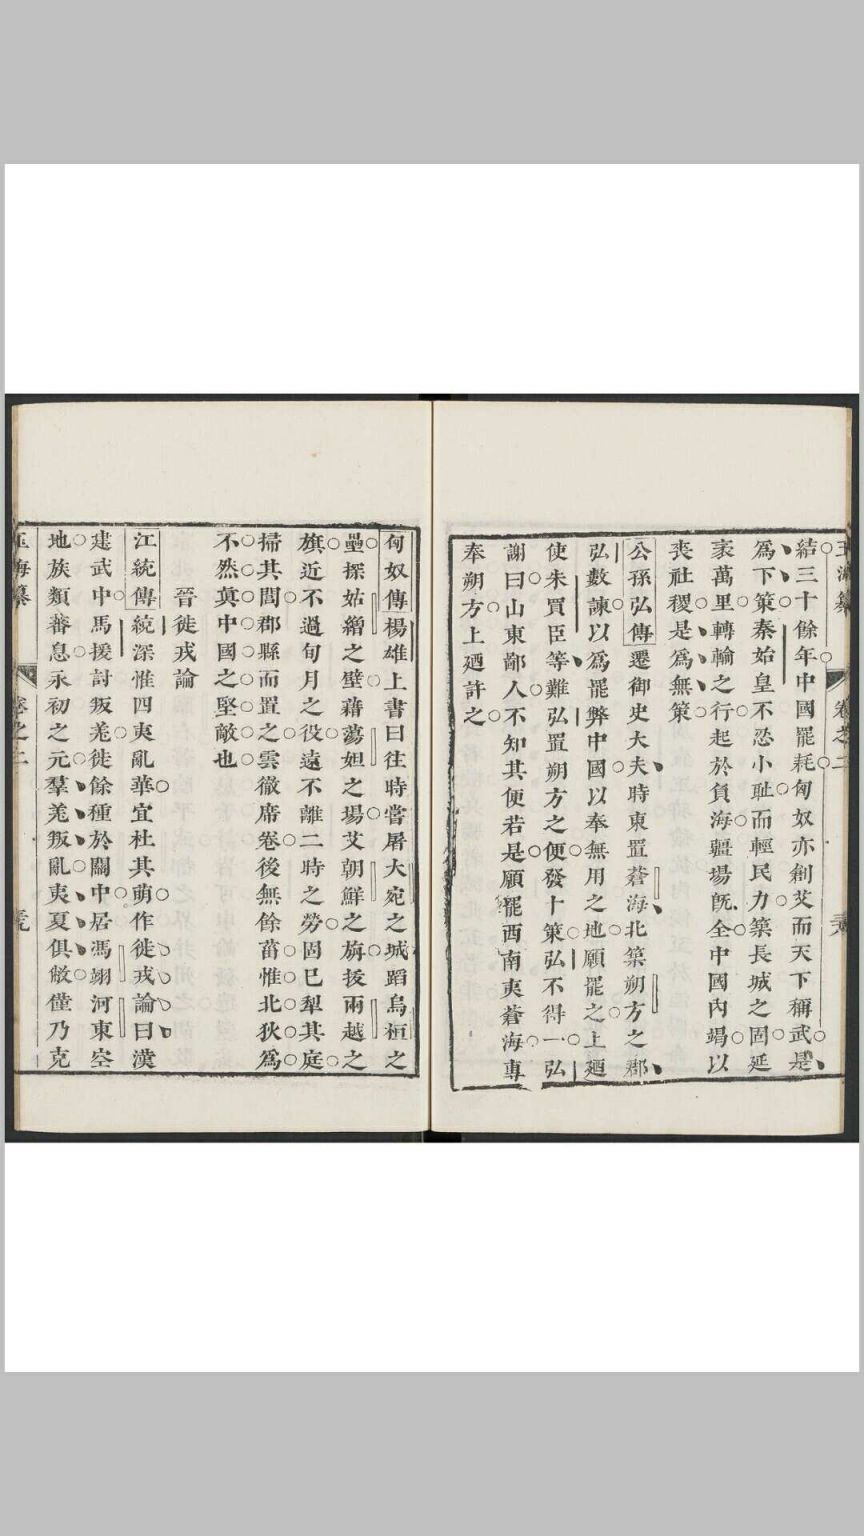 結三十餘年中國罷耗匈奴亦創艾而天下稱武是
為下策秦始皇不忍小耻而輕民力築長城之固延
袤萬里轉輸之行起於負海疆場旣全中國內竭以
喪社稷是爲無策
公孫弘傳遷御史大夫時東置蒼海北築朔方之郡
弘數諫以爲罷弊中國以奉無用之地願罷之上廼
使朱買臣等難弘置朔方之便發十策弘不得一弘
謝曰山東鄙人不知其便若是願罷西南夷蒼海專
奉朔方上廼許之
匈奴傳楊雄上書曰往時嘗屠大宛之城蹈烏桓之
壘探姑繒之壁藉蕩姐之場艾朝鮮之旃拔兩越之
旗近不過旬月之役遠不離二時之勞固已犁其庭
掃其閭郡縣而置之雲徹席卷後無餘菑惟北狄爲
不然眞中國之堅敵也
晉徙戎論
江統傳統深惟四夷亂華宜杜其萌作徙戎論曰漢
建武中馬援討叛羌徙餘種於關中居馮翊河東空
地族類蕃息永初之元羣羌叛亂夷夏俱敝僅乃克